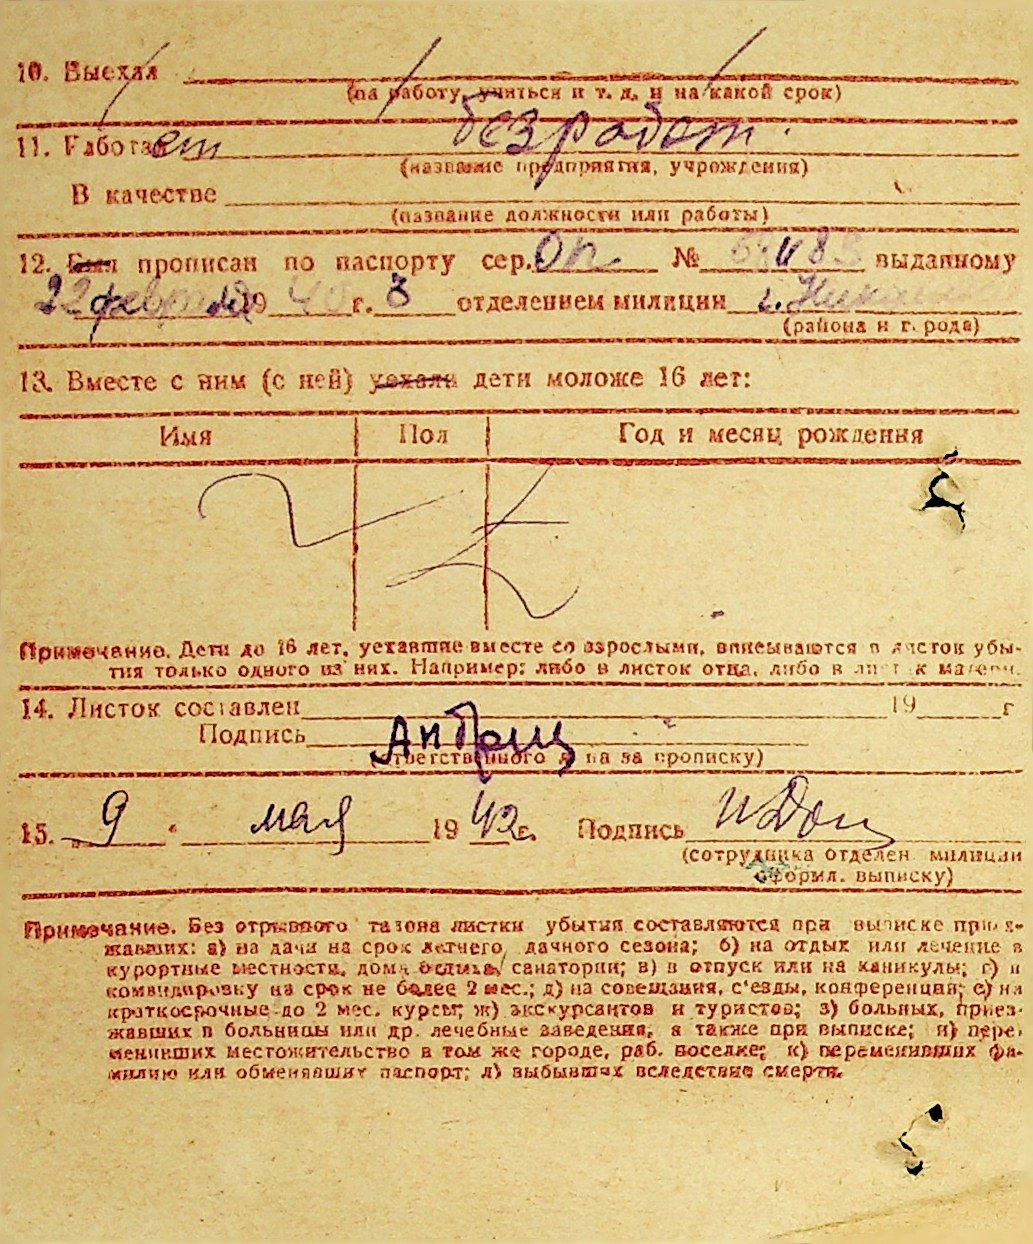 10. Выехал
(на работу, учиться и т. д. и на какой срок)
11. Работает безработ.
(название предприятия, учреждения)
В качестве
(название должности или работы)
12. Был прописан по паспорту сер. Оп. № выданному
22 февраля 1940 г. 3 отделением милиции г.
(района и города)
13. Вместе с ним (с ней) уехали дети моложе 16 лет:
Имя Пол Год и месяц рождения
Примечание. Дети до 16 лет, уехавшие вместе со взрослыми, вписываются в листок убы-
тия только одного из них. Например: либо в листок отца, либо в листок матери.
14. Листок составлен 19 г
Подпись
(ответственного за прописку)
15. „9 " мая 1942 г. Подпись
(сотрудника отделен. милиции
оформл. выписку)
Примечание. Без отрывного талона листки убытия составляются при выписке приез-
жавших: а) на дачи на срок летнего дачного сезона; б) на отдых или лечение в
курортные местности, дома отдыха, санатории; в) в отпуск или на каникулы; г) в
командировку на срок не более 2 мес.; д) на совещания, с'езды, конференции; е) на
краткосрочные до 2 мес. курсы; ж) экскурсантов и туристов; з) больных, приез-
жавших в больницы или др. лечебные заведения, а также при выписке; и) пере-
менивших местожительство в том же городе, раб. поселке; к) переменивших фа-
милию или обменявших паспорт; л) выбывших вследствие смерти.